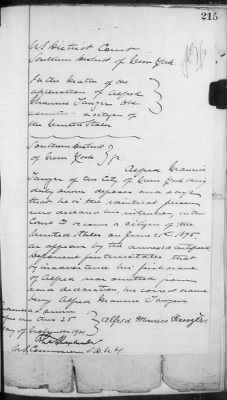 215
US District Court
Southern District of New York
In the Matter of the
application of Alfred
Maurice Tanzer to be
admitted a citizen of
the United States
Southern District
of New York
Alfred Maurice
Tanzer of the City of New York being
duly sworn deposes and says
that he is the identical person
who declared his intention in this
Court to become a citizen of the
United States on June 25th 1895
as appears by the annexed certificate
Deponent further states, that
by inadvertence his first name
of Alfred was omitted from
said declaration, his correct name
being Alfred Maurice Tanzer
Subscribed & sworn
before me this 25
day of September 1901
Alfred Maurice Tanzer